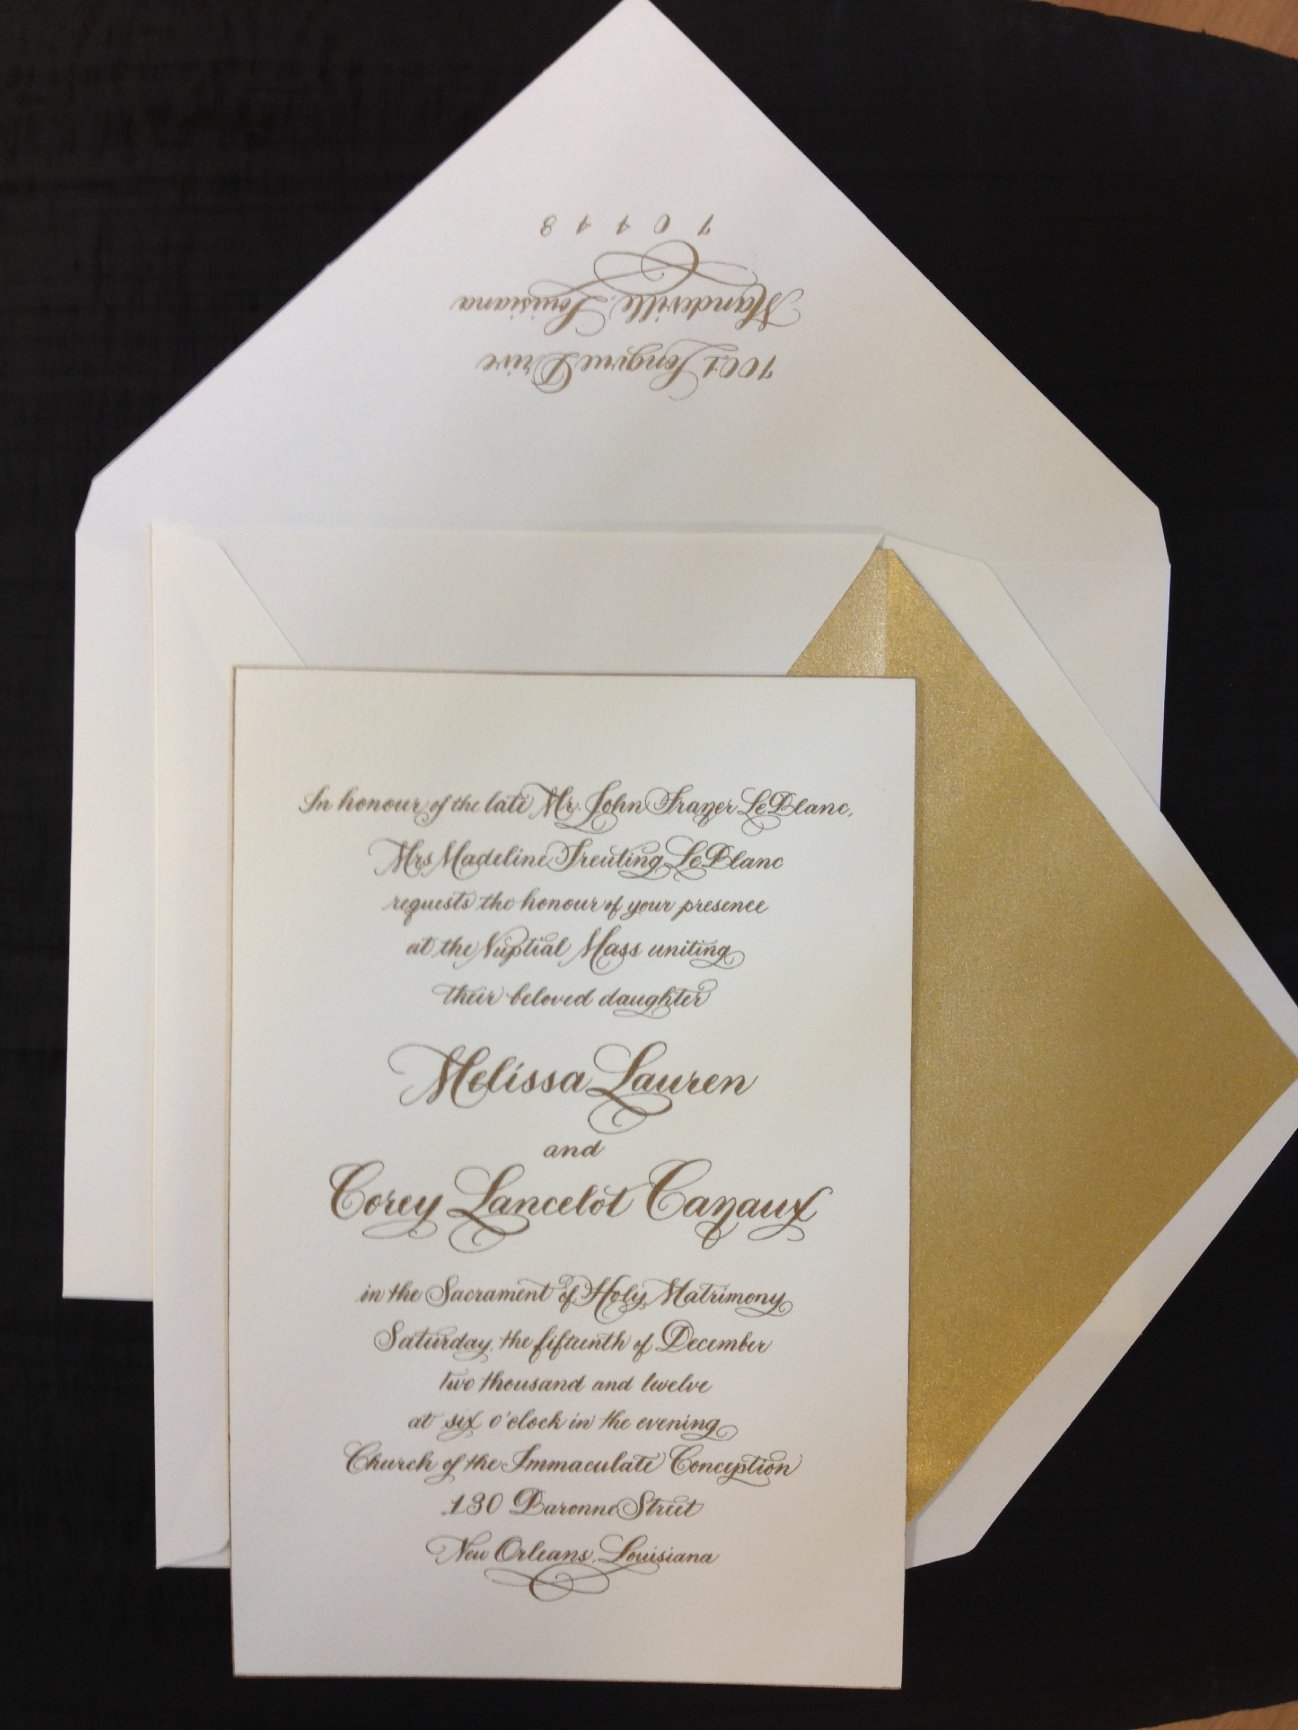 7001 Longvue Drive
Mandeville, Louisiana
70448
In honour of the late Mr. John Frazer LeBlanc,
Mrs Madeline Treuting LeBlanc
requests the honour of your presence
at the Nuptial Mass uniting
their beloved daughter
Melissa Lauren
and
Corey Lancelot Canaux
in the Sacrament of Holy Matrimony
Saturday, the fifteenth of December
two thousand and twelve
at six o'clock in the evening
Church of the Immaculate Conception
130 Baronne Street
New Orleans, Louisiana